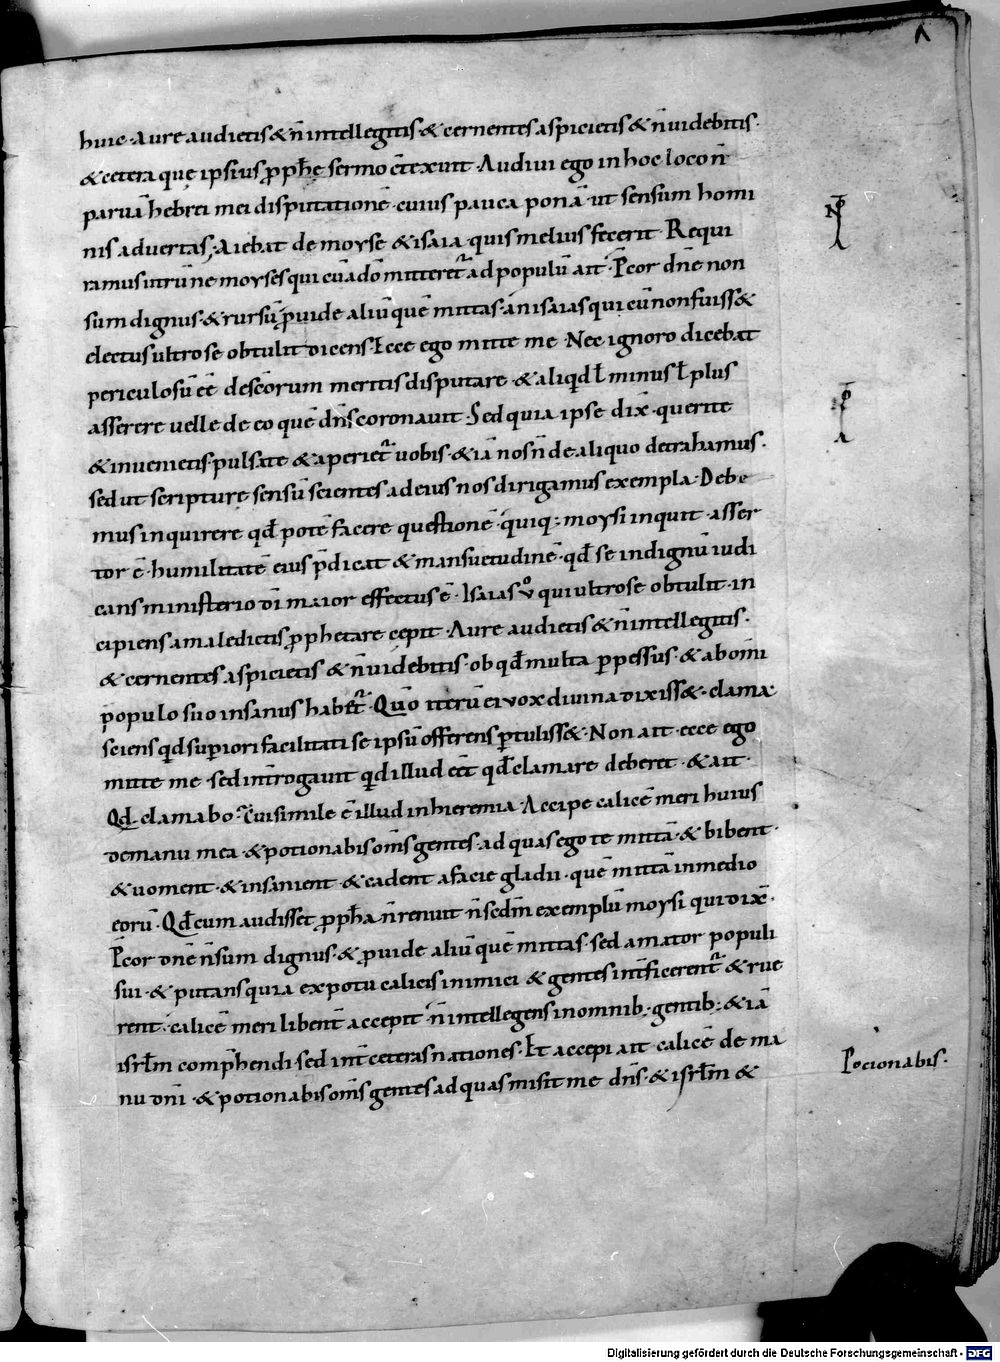 huic · Aure audietis & n̄ intellegitis · & cernentes aspicietis & n̄ videbitis ·
& cetera que ipsius ꝓph̄e sermo cōtexuit · Audivi ego in hoc loco n̄
parvā hebrei mei disputationē · cuius pauca ponā ut sensum homi
nis advertas · Aiebat de moyse & isaia · quis melius fecerit · Requi
ramus utrū ne moyses qui cū a dō mitteret᷑ ad populū ait · P̄cor dn̄e non
sum dignus · & rursū ꝓvide aliū quē mittas · an isaias qui cū non fuiss&
electus ultro se obtulit dicens · Ecce ego mitte me · Nec ignoro dicebat
periculosū eē de scōrum meritis disputare · & aliqđ ł minus ł plus
asserere velle de eo quē dn̄s coronavit · Sed quia ipse dix̄ · querite
& invenietis · pulsate & aperiet᷑ vobis · & iā nos n̄ de aliquo detrahamus ·
sed ut scripture sensū scientes ad eius nos dirigamus exempla · Debe
mus inquirere qđ potē facere questionē · quiq; moysi inquit · asser
tor ē · humilitatē eius p̄dicat & mansuetudinē · qđ se indignū iudi
cans ministerio dī maior effectus ē · Isaias v̊ qui ultro se obtulit · in
cipiens a maledictis ꝓphetare cepit · Aure audietis & n̄ intellegitis ·
& cernentes aspicietis & n̄ videbitis · ob qđ multa ꝑpessus · & ab omī
populo suo insanus habet᷑ · Quō iterū ei vox divina dixiss& · clama
sciens qđ suꝑiori facilitati se ipsū offerens ꝑtuliss& · Non ait · ecce ego
mitte me · sed int̄rogavit qđ illud eēt qđ clamare deberet · & ait ·
Qđ clamabo · Cui simile ē illud in hieremia · Accipe calicē meri huius
de manu mea · & potionabis om̄s gentes · ad quas ego te mittā · & bibent ·
& voment · & insanient · & cadent a facie gladii · quē mittā in medio
eorū · Qđ cum audisset ꝓph̄a n̄ renuit n̄ sedm̄ exemplū moysi qui dix̄ ·
P̄cor dn̄e n̄ sum dignus · & ꝓvide aliū quē mittas · sed amator populi
sui · & putans quia ex potu calicis inimici & gentes int̄ficerent᷑ & rue
rent · calicē meri libent̄ accepit · n̄ intellegens in omnib; gentib; · & iā
isrl̄m comp̄hendi · sed int̄ ceteras nationes · Et accepi ait calicē de ma
nu dn̄i · & potionabis om̄s gentes ad quas misit me dn̄s · & isrl̄m &
Pocionabis ·
Digitalisierung gefördert durch die Deutsche Forschungsgemeinschaft - DFG